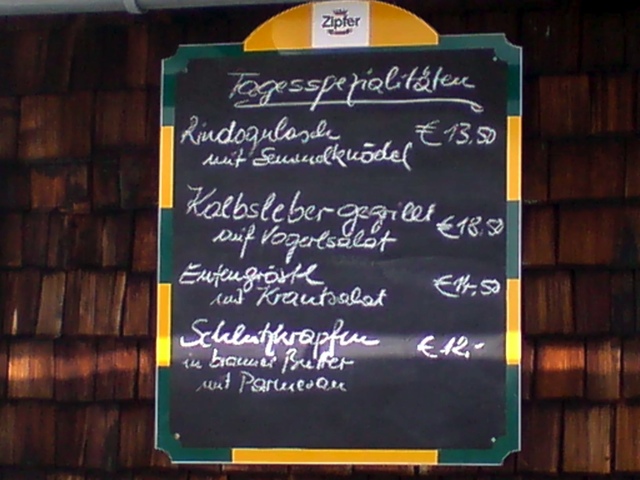 Zipfer
Tagesspezialitäten
Rindsgulasch € 13,50
mit Semmelknödel
Kalbsleber gegrillt € 18,50
auf Vogerlsalat
Entengröstl € 14,50
mit Krautsalat
Schlutzkrapfen € 12,-
in brauner Butter
mit Parmesan